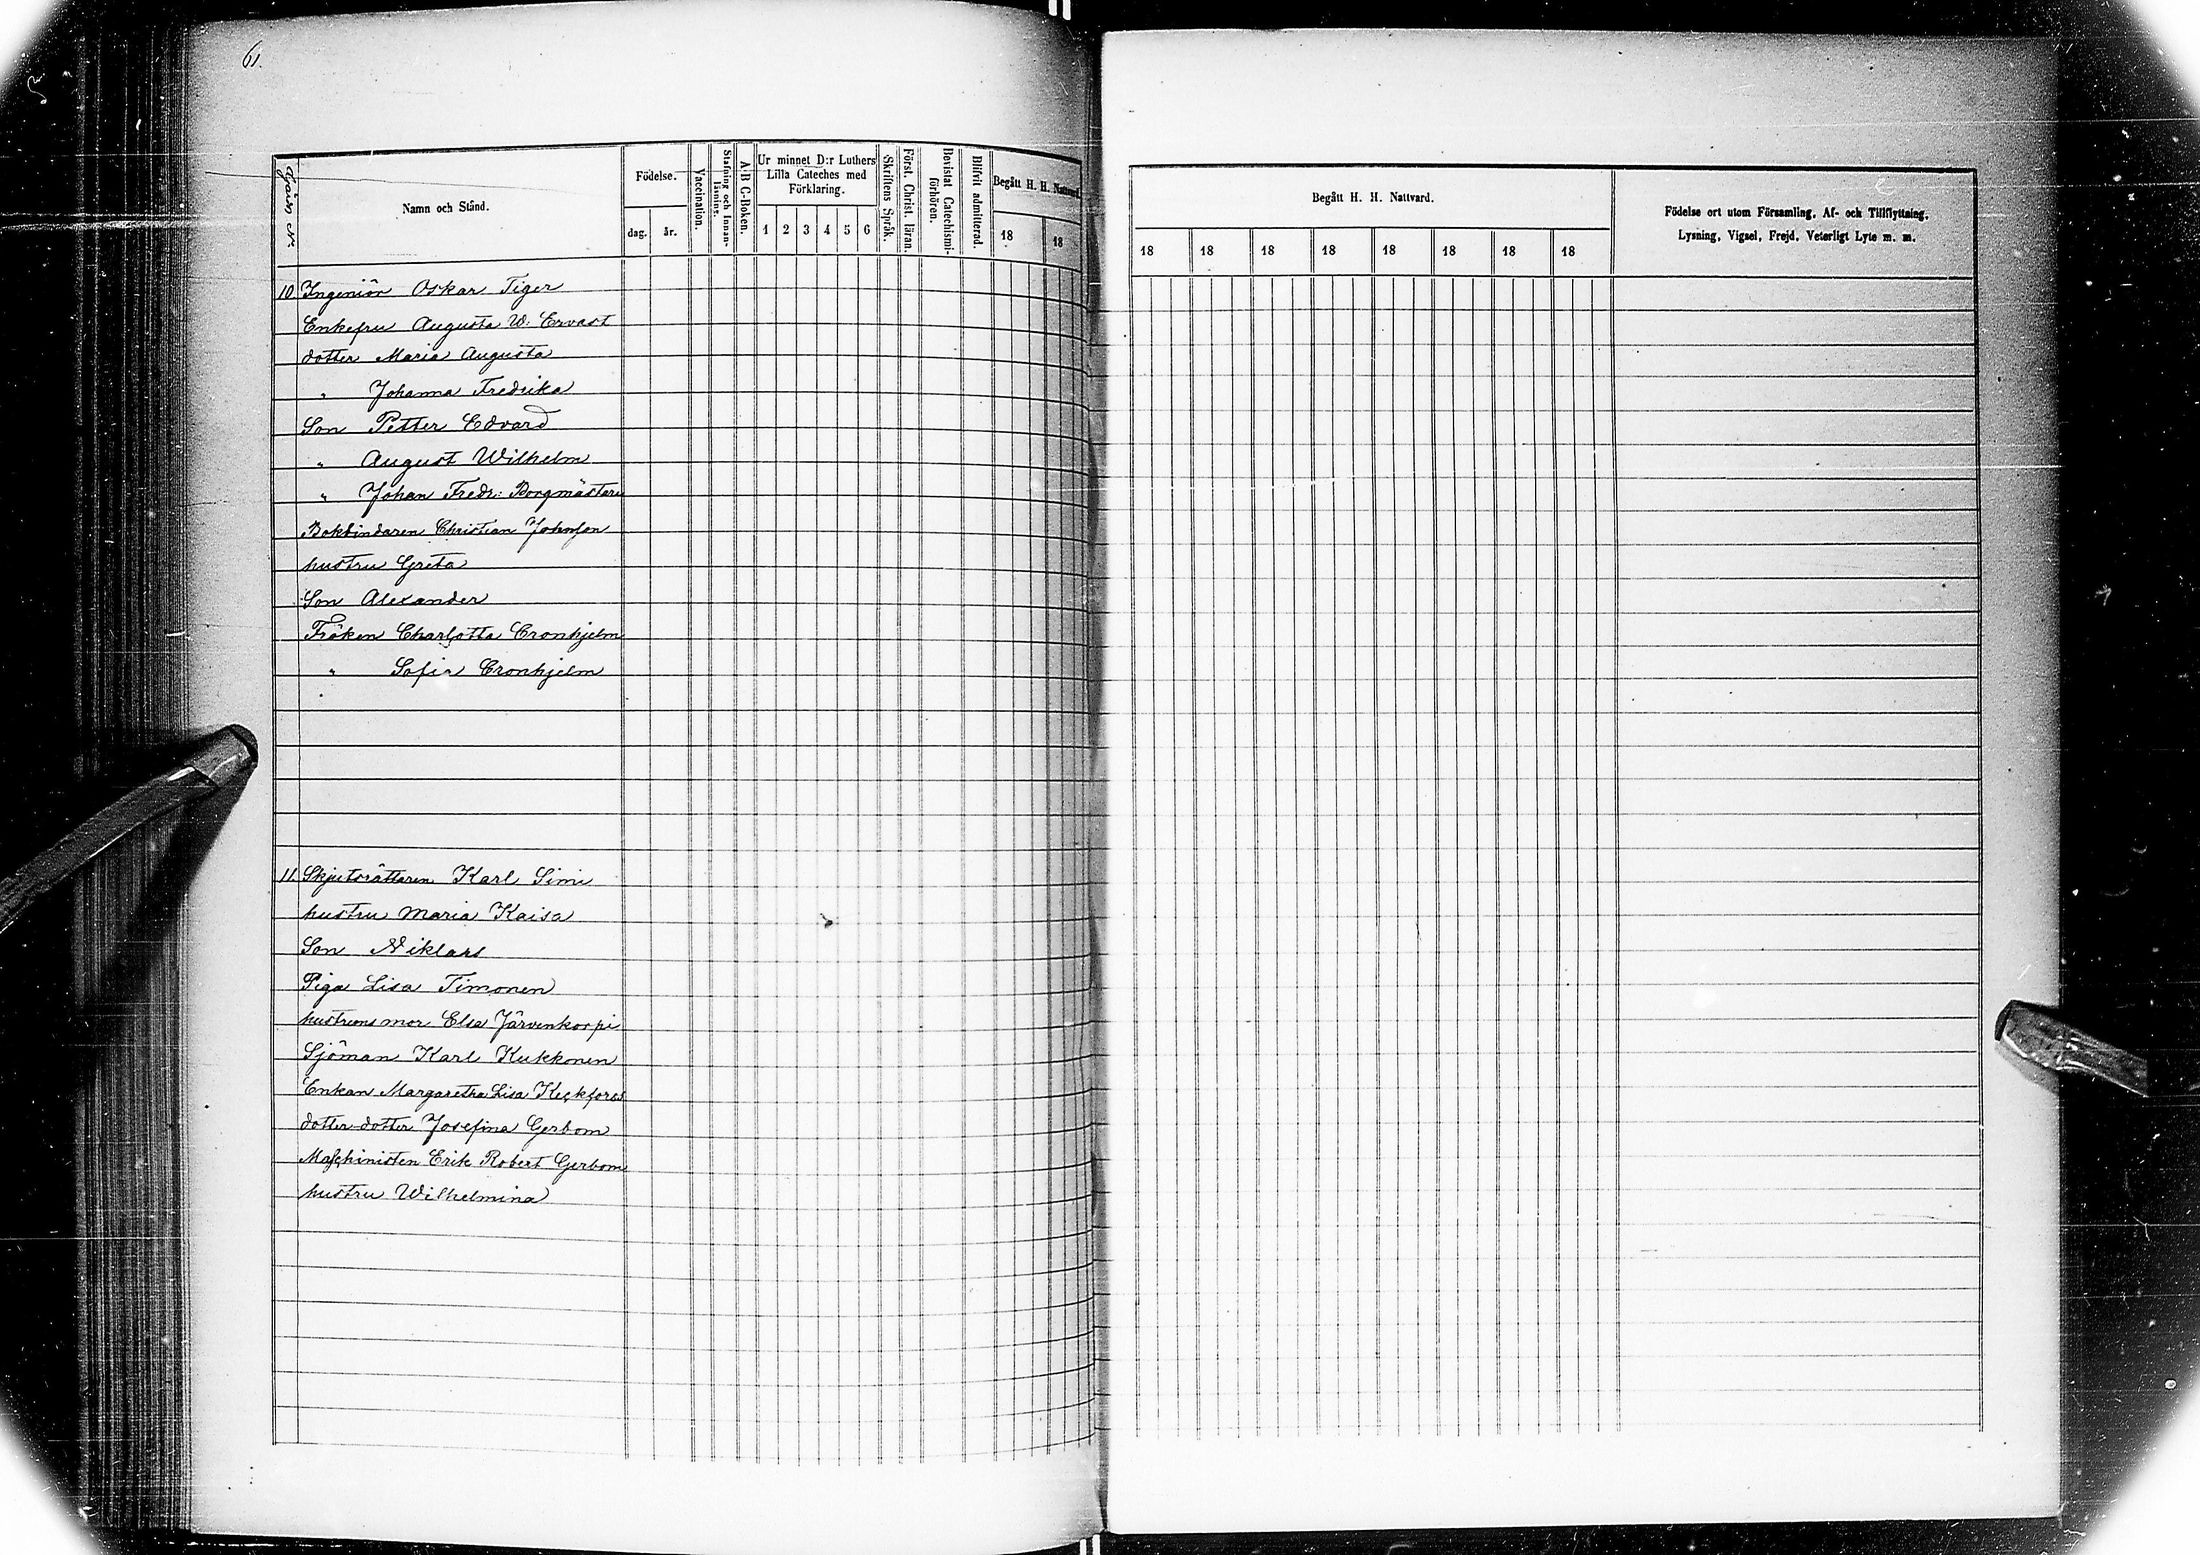 61.
Gårds No
Namn och Stånd.
Födelse.
dag.
år.
Vaccination.
Stafning och Innan-läsning.
A-B C-Boken.
Ur minnet D:r Luthers
Lilla Cateches med
Förklaring.
1 2 3 4 5 6
Skriftens Språk.
Först. Christ. läran.
Bevistat Catechismi-förhören.
Blifvit admitterad.
Begått H. H. Nattvard.
18 18
10 Ingeniör Oskar Tiger
Enkefru Augusta W. Ervast
dotter Maria Augusta
" Johanna Fredrika
Son Petter Edvard
" August Wilhelm
" Johan Fredr: Borgmästare
Bokbindaren Christian Johnson
hustru Greta
Son Alexander
Fröken Charlotta Cronhjelm
" Sofia Cronhjelm
11 Skjutsrättaren Karl Simi
hustru Maria Kaisa
Son Niklars
Piga Lisa Timonen
hustruns mor Elsa Järvenkorpi
Sjöman Karl Kukkonen
Enkan Margaretha Lisa Keckfors
dotter-dotter Josefina Gerbom
Maschinisten Erik Robert Gerbom
hustru Wilhelmina
Begått H. H. Nattvard.
18 18 18 18 18 18 18 18
Födelse ort utom Församling, Af- och Tillflyttning,
Lysning, Vigsel, Frejd, Veterligt Lyte m. m.